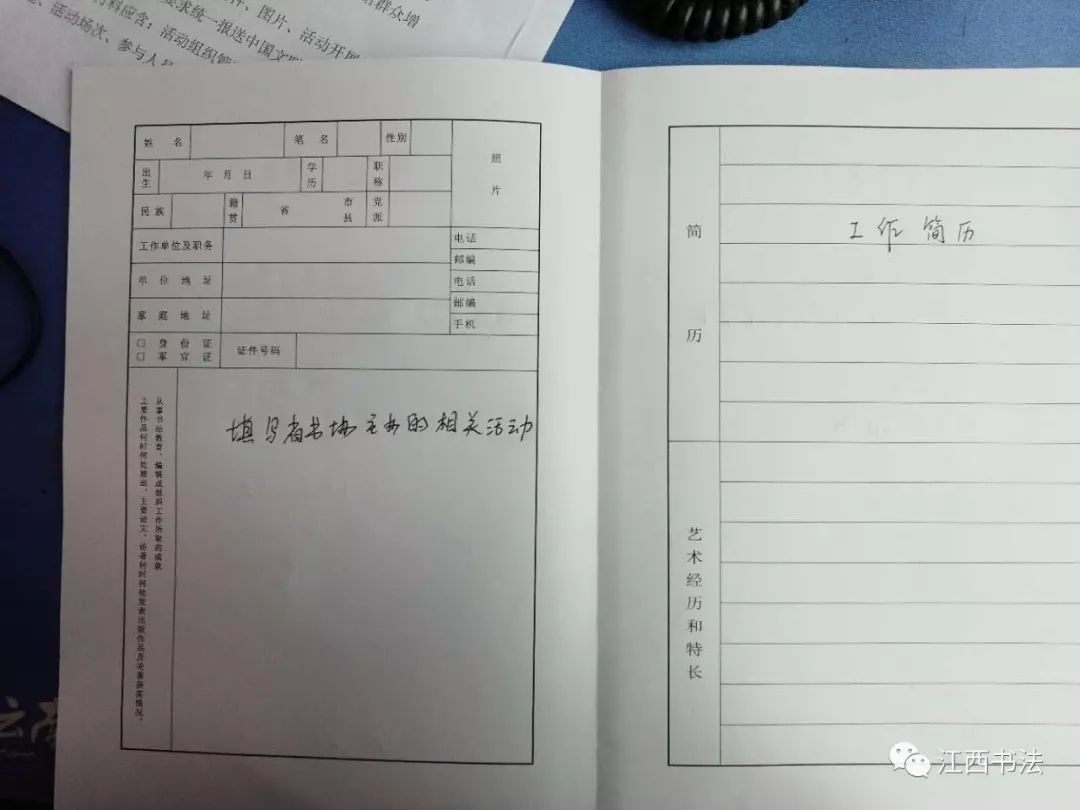 件、图片、活动开展
要求统一报送中国文联
材料应含：活动组织管
活动场次、参与人员
群众增
姓 名
笔 名
性别
照 片
出生
年 月 日
学历
职称
民 族
籍贯
省
市 县
党派
工作单位及职务
电话
邮编
单 位 地 址
电话
邮编
家 庭 地 址
手机
□ 身 份 证
□ 军 官 证
证件号码
从事书法教育、编辑或组织工作所取的成就
主要作品何时何处展出、主要论文、论著何时何处发表出版作品及论著获奖情况。
填写省书协主办的相关活动
简 历
工作简历
艺术经历和特长
江西书法